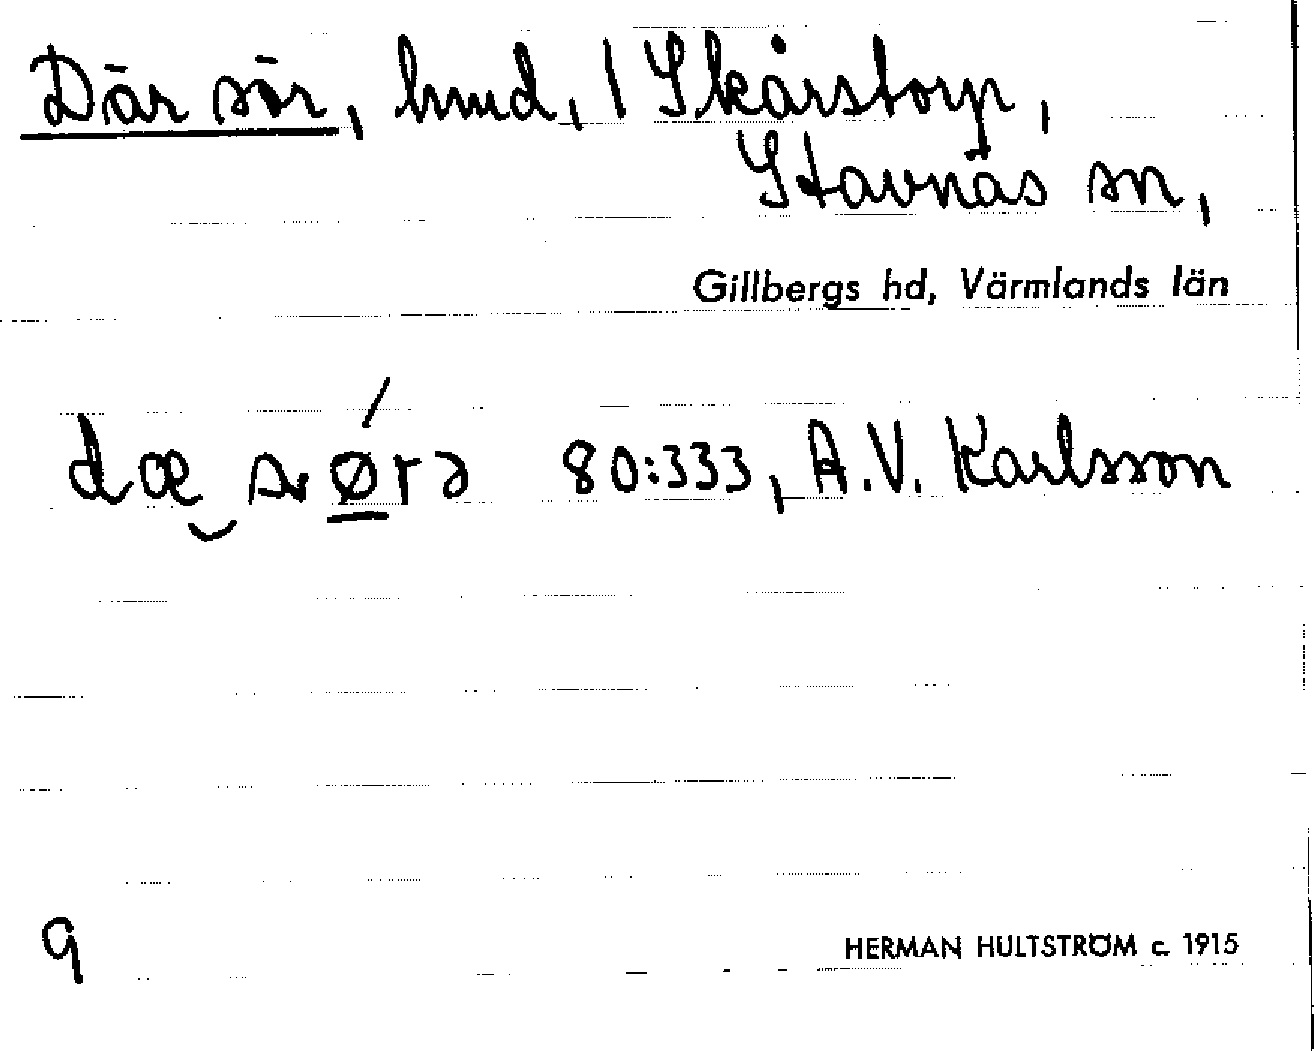 Där sör, hmd, 1 Skårstorp,
Stavnäs sn,
Gillbergs hd, Värmlands län
dæ sørə 80:333, A.V. Karlsson
9
HERMAN HULTSTRÖM c. 1915